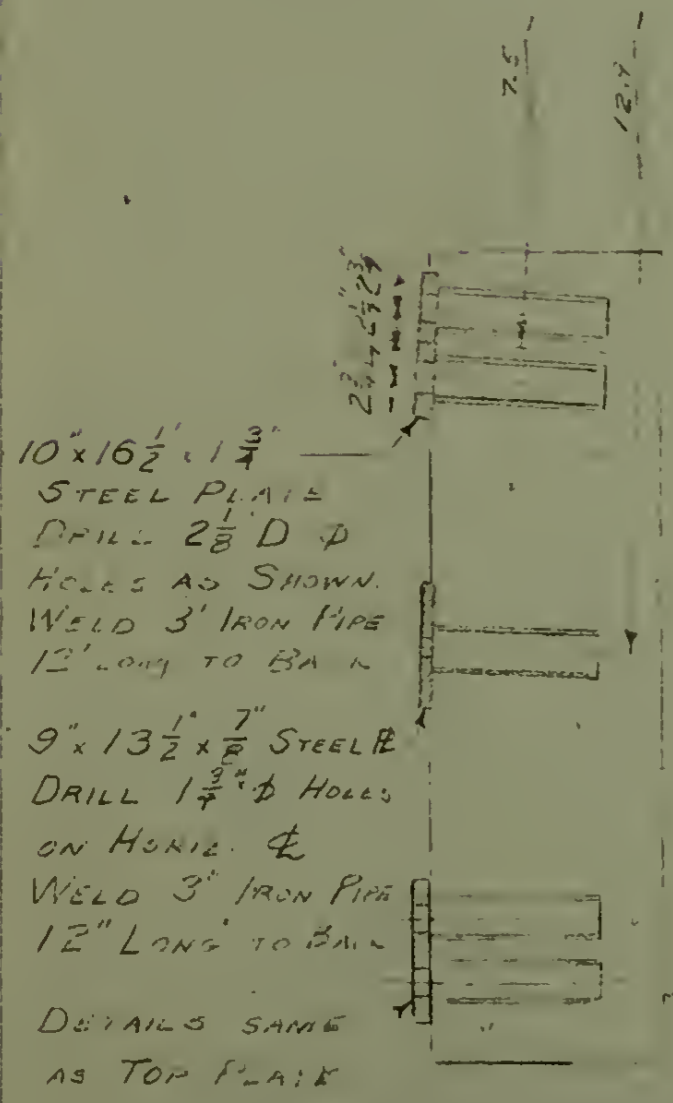 7.5
12.4
10" x 16 1/2" x 1 3/4"
STEEL PLATE
DRILL 2 1/8" D ⌀
HOLES AS SHOWN.
WELD 3" IRON PIPE
12" LONG TO BACK
9" x 13 1/2" x 7/8" STEEL ℄
DRILL 1 3/4" ⌀ HOLES
ON HORIZ. ℄
WELD 3" IRON PIPE
12" LONG TO BACK
DETAILS SAME
AS TOP PLATE